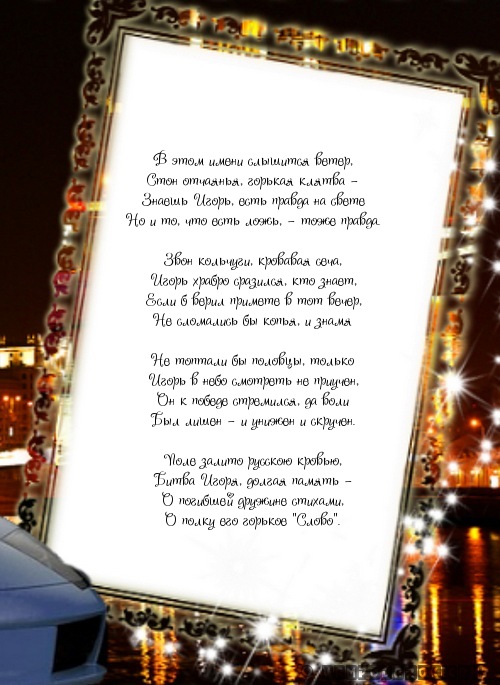 В этом имени слышится ветер,
Стон отчаянья, горькая клятва –
Знаешь Игорь, есть правда на свете
Но и то, что есть ложь, – тоже правда.
Звон кольчуги, кровавая сеча,
Игорь храбро сразился, кто знает,
Если б верил примете в тот вечер,
Не сломались бы копья, и знамя
Не топтали бы половцы, только
Игорь в небо смотреть не приучен,
Он к победе стремился, да воли
Был лишен – и унижен и скручен.
Поле залито русскою кровью,
Битва Игоря, долгая память –
О погибшей дружине стихами,
О полку его горькое "Слово".